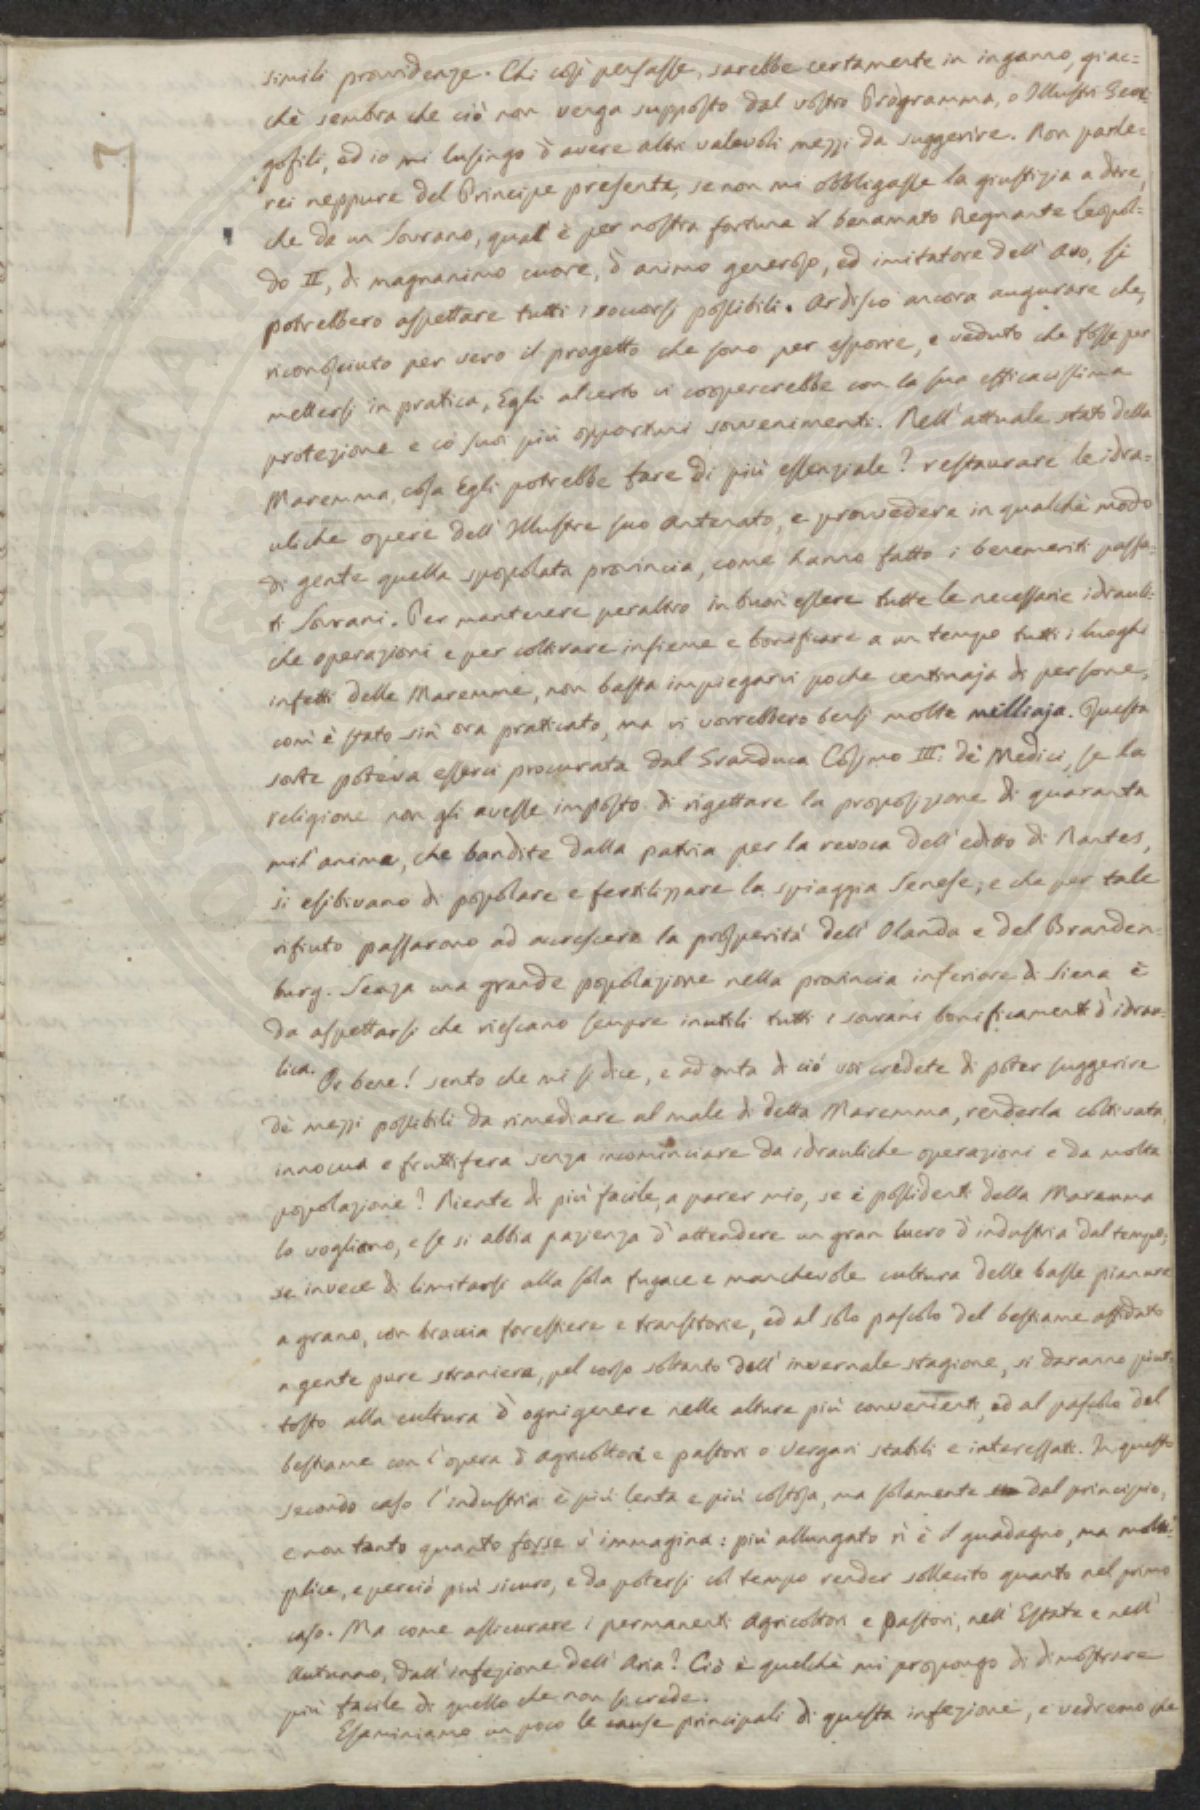 7
simili provvidenze. Chi così pensasse, sarebbe certamente in inganno, giac=
chè sembra che ciò non venga supposto dal vostro Programma, o Illustri Geor=
gofili, ed io mi lusingo d'avere altri valevoli mezzi da suggerire. Non parle=
rei neppure del Principe presente, se non mi obbligasse la giustizia a dire,
che da un Sovrano, qual è per nostra fortuna il benamato Regnante Leopol=
do II, di magnanimo cuore, d'animo generoso, ed imitatore dell'Avo, si
potrebbero aspettare tutti i soccorsi possibili. Ardisco ancora augurare che,
riconosciuto per vero il progetto che sono per esporre, e veduto che fosse per
mettersi in pratica, Egli al certo vi coopererebbe con la sua efficacissima
protezione e co' suoi più opportuni sovvenimenti. Nell'attuale stato della
Maremma, cosa Egli potrebbe fare di più essenziale? restaurare le idra=
uliche opere dell'Illustre suo Antenato, e provvedere in qualche modo
di gente quella spopolata provincia, come hanno fatto i benemeriti passa=
ti Sovrani. Per mantenere peraltro in buon essere tutte le necessarie idrauli=
che operazioni e per coltivare insieme e bonificare a un tempo tutti i luoghi
infetti delle Maremme, non basta impiegarvi poche centinaja di persone,
com'è stato sin'ora praticato, ma vi vorrebbero bensì molte milliaja. Questa
sorte poteva esserci procurata dal Granduca Cosimo III. de' Medici, se la
religione non gli avesse imposto di rigettare la proposizione di quaranta
mil'anime, che bandite dalla patria per la revoca dell'editto di Nantes,
si esibivano di popolare e fertilizzare la spiaggia Senese, e che per tale
rifiuto passarono ad accrescere la prosperità dell'Olanda e del Branden=
burg. Senza una grande popolazione nella provincia inferiore di Siena è
da aspettarsi che riescano sempre inutili tutti i sovrani bonificamenti d'idrau=
lica.
Or bene! sento che mi si dice, e ad onta di ciò voi credete di poter suggerire
de' mezzi possibili da rimediare al male di detta Maremma, renderla coltivata,
innocua e fruttifera senza incominciare da idrauliche operazioni e da molta
popolazione? Niente di più facile, a parer mio, se i possidenti della Maremma
lo vogliono, e se si abbia pazienza d'attendere un gran lucro d'industria dal tempo;
se invece di limitarsi alla sola fugace e manchevole cultura delle basse pianure
a grano, con braccia forestiere e transitorie, ed al solo pascolo del bestiame affidato
a gente pure straniera, pel corso soltanto dell'invernale stagione, si daranno piut=
tosto alla cultura d'ogni genere nelle alture più convenienti, ed al pascolo del
bestiame con l'opera d'Agricoltori e pastori o Vergari stabili e interessati. In questo
secondo caso l'industria è più lenta e più costosa, ma solamente dal principio,
e non tanto quanto forse s'immagina: più allungato si è il guadagno, ma molti=
plice, e perciò più sicuro, e da potersi col tempo render sollecito quanto nel primo
caso. Ma come assicurare i permanenti Agricoltori e Pastori, nell'Estate e nell'
Autunno, dall'infezione dell'Aria? Ciò è quelchè mi propongo di dimostrare
più facile di quello che non si crede.
Esaminiamo un poco le cause principali di questa infezione, e vedremo che